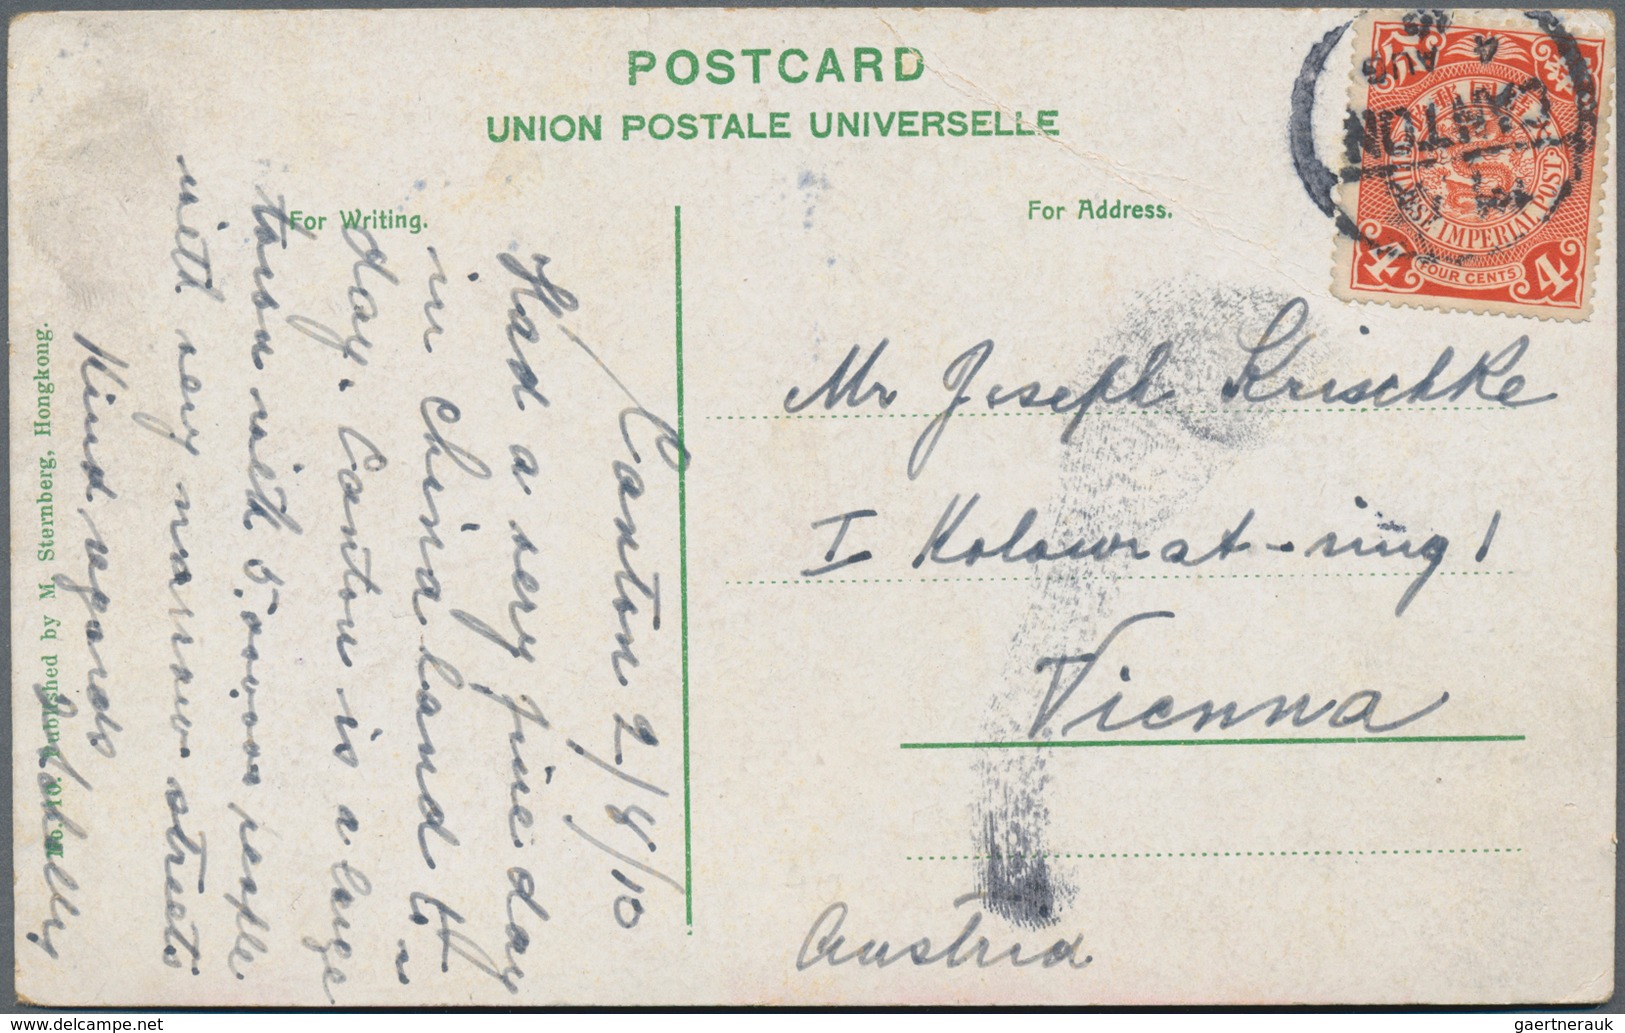 POSTCARD
UNION POSTALE UNIVERSELLE
For Writing.
For Address.
Canton 2/8/10
Had a very fine day
in China land to-
day. Canton is a large
town with 5.000.000 people
with very narrow streets
Kind regards
Mr Joseph Krischke
I Kolowrat-ring 1
Vienna
Austria
Published by M. Sternberg, Hongkong.
CANTON
4
AUG
CHINESE IMPERIAL POST
FOUR CENTS
4
4
gaertnerauk